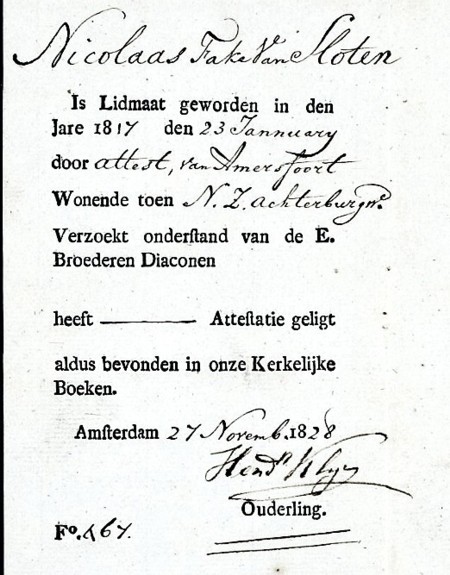 Nicolaas Fake Van Sloten
Is Lidmaat geworden in den
Jare 1817 den 23 Jannuary
door attest, van Amersfoort
Wonende toen N. Z. achterburgw.
Verzoekt onderſtand van de E.
Broederen Diaconen
heeft ——— Atteſtatie geligt
aldus bevonden in onze Kerkelijke
Boeken.
Amſterdam 27 Novemb. 1828
Hend.k
Ouderling.
Fo. 167.